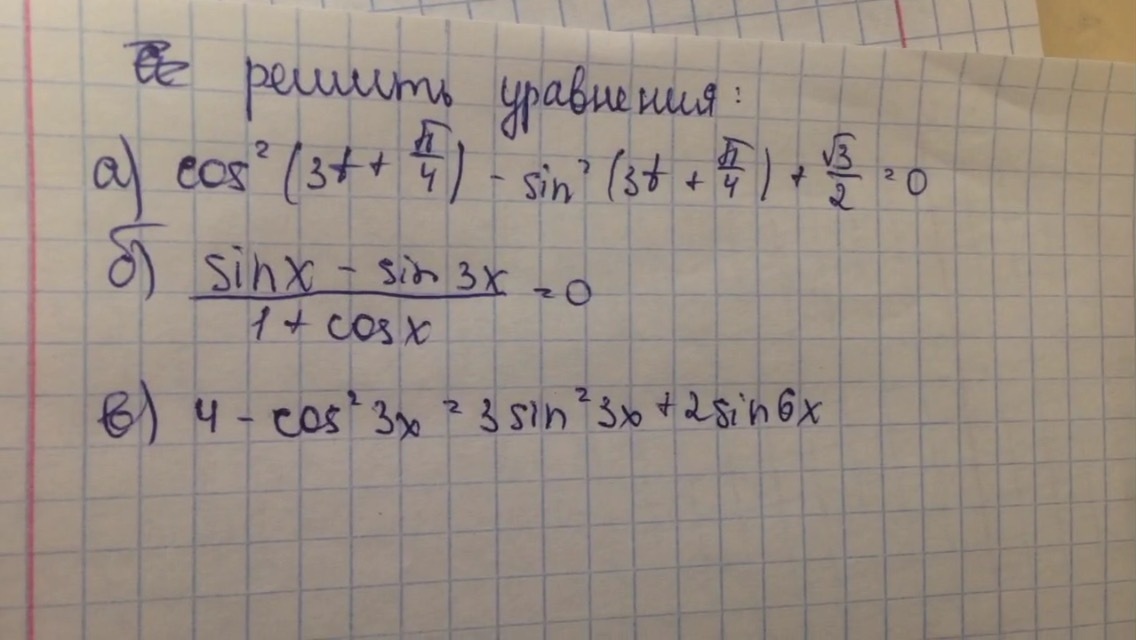 решить уравнения:
а) cos² (3t + π/4) - sin² (3t + π/4) + √3/2 = 0
б) (sinx - sin 3x)/(1 + cosx) = 0
в) 4 - cos² 3x = 3 sin² 3x + 2 sin 6x